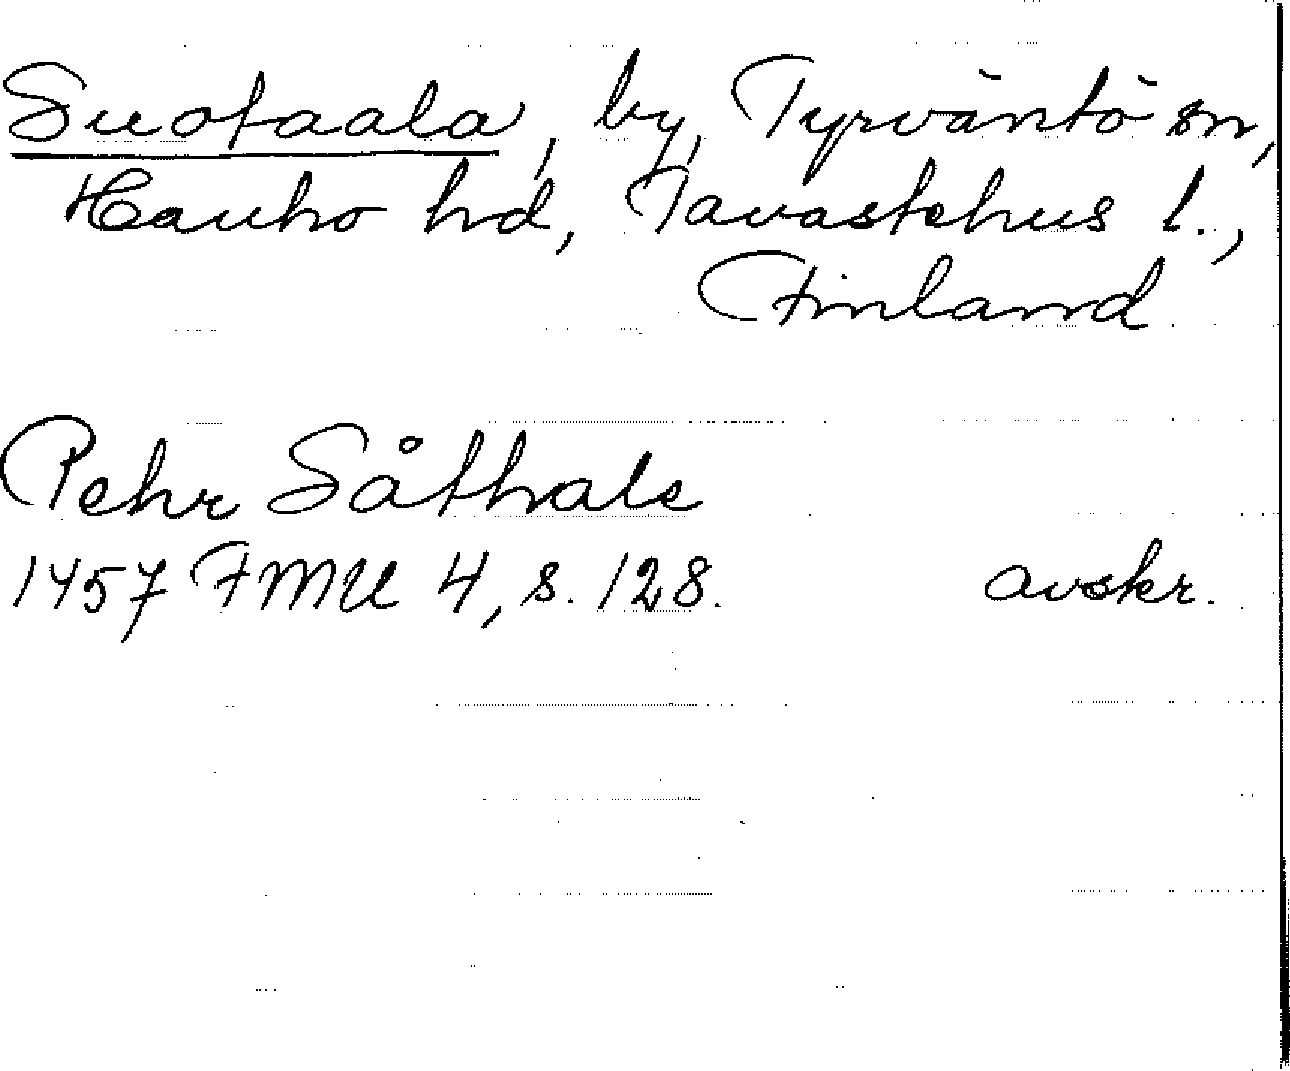 Suotaala, by, Tyrväntö sn,
Hauho hd, Tavastehus l.,
Finland
Pehr Såthals
1457 FMU 4, s. 128. avskr.